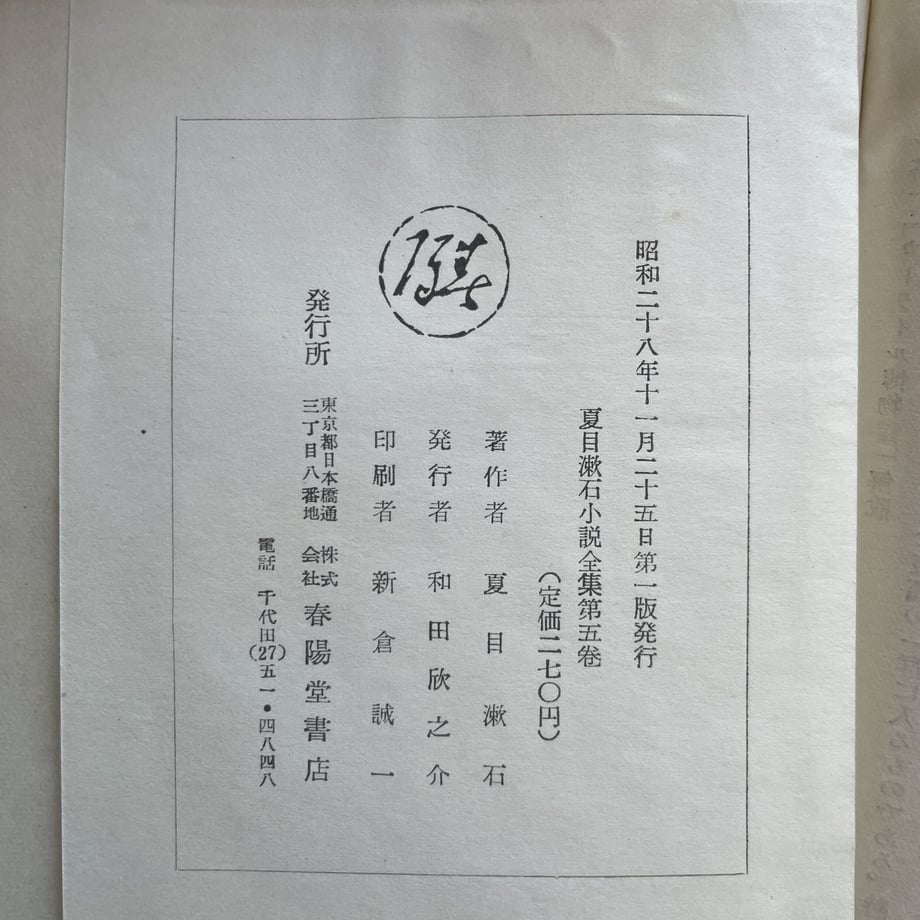 昭和二十八年十一月二十五日第一版発行
夏目漱石小説全集第五巻
（定価二七〇円）
著作者 夏目漱石
発行者 和田欣之介
印刷者 新倉誠一
発行所
東京都日本橋通
三丁目八番地
株式
会社
春陽堂書店
電話 千代田(27)五一・四八四八